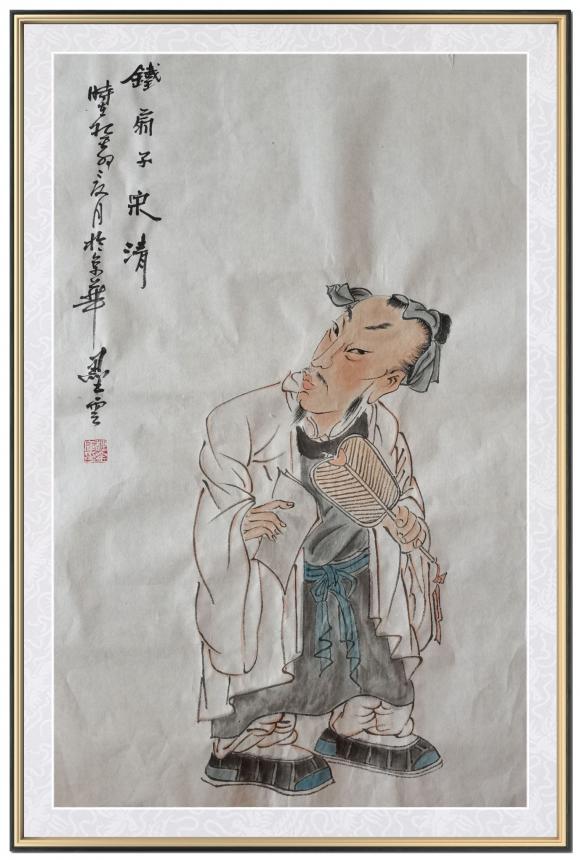 鐵扇子宋清
時在月於京華 墨雲